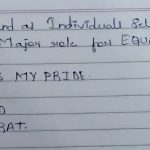 and as Individuals Sel
Major role for EQUA
S MY PRIDE.
D
BAT.